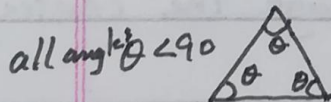 all angles θ < 90
θ
θ θ